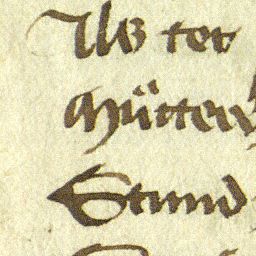 Als ter
Mütter
Stund